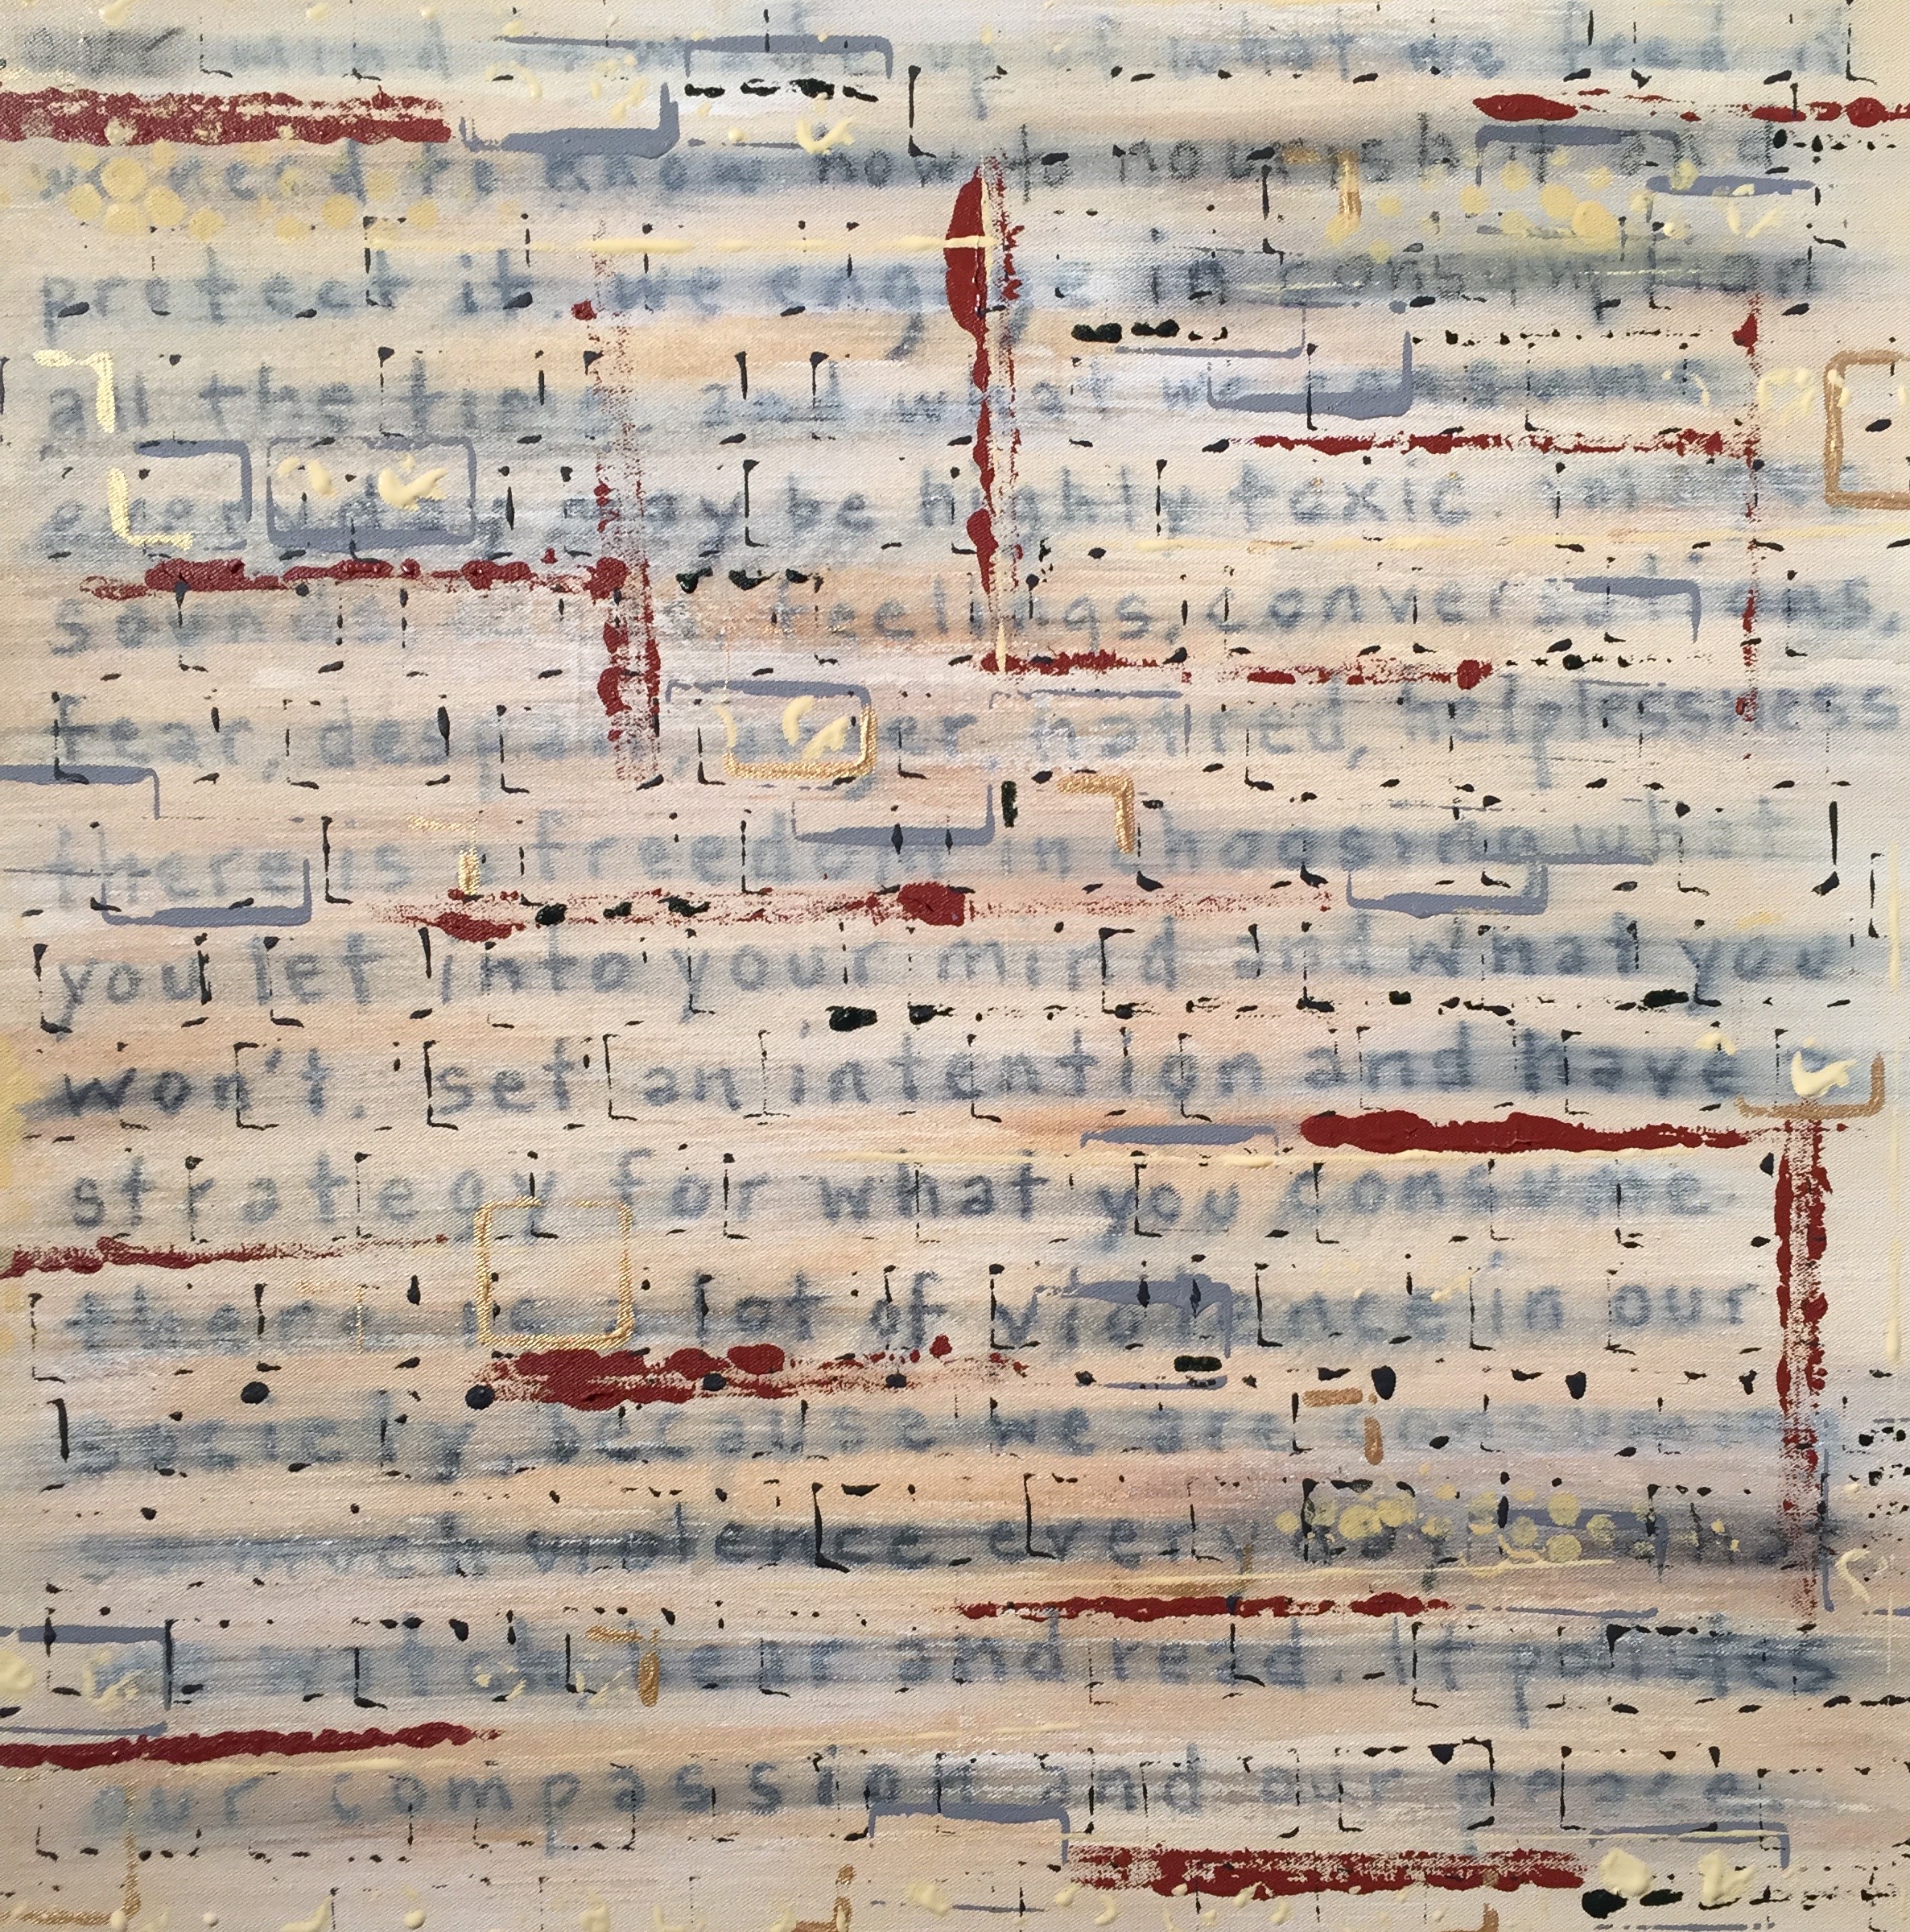 mind is made up of what we feed it
we need to know how to nourish it and
protect it. we engage in consumption
all the time and what we consume
everyday may be highly toxic.
sounds feelings, conversations,
fear, despair, anger hatred, helplessness
there is freedom in choosing what
you let into your mind and what you
won't. set an intention and have a
strategy for what you consume.
there is a lot of violence in our
society, because we are consuming
so much violence every day
watch hear and read. It poisons
our compassion and our peace